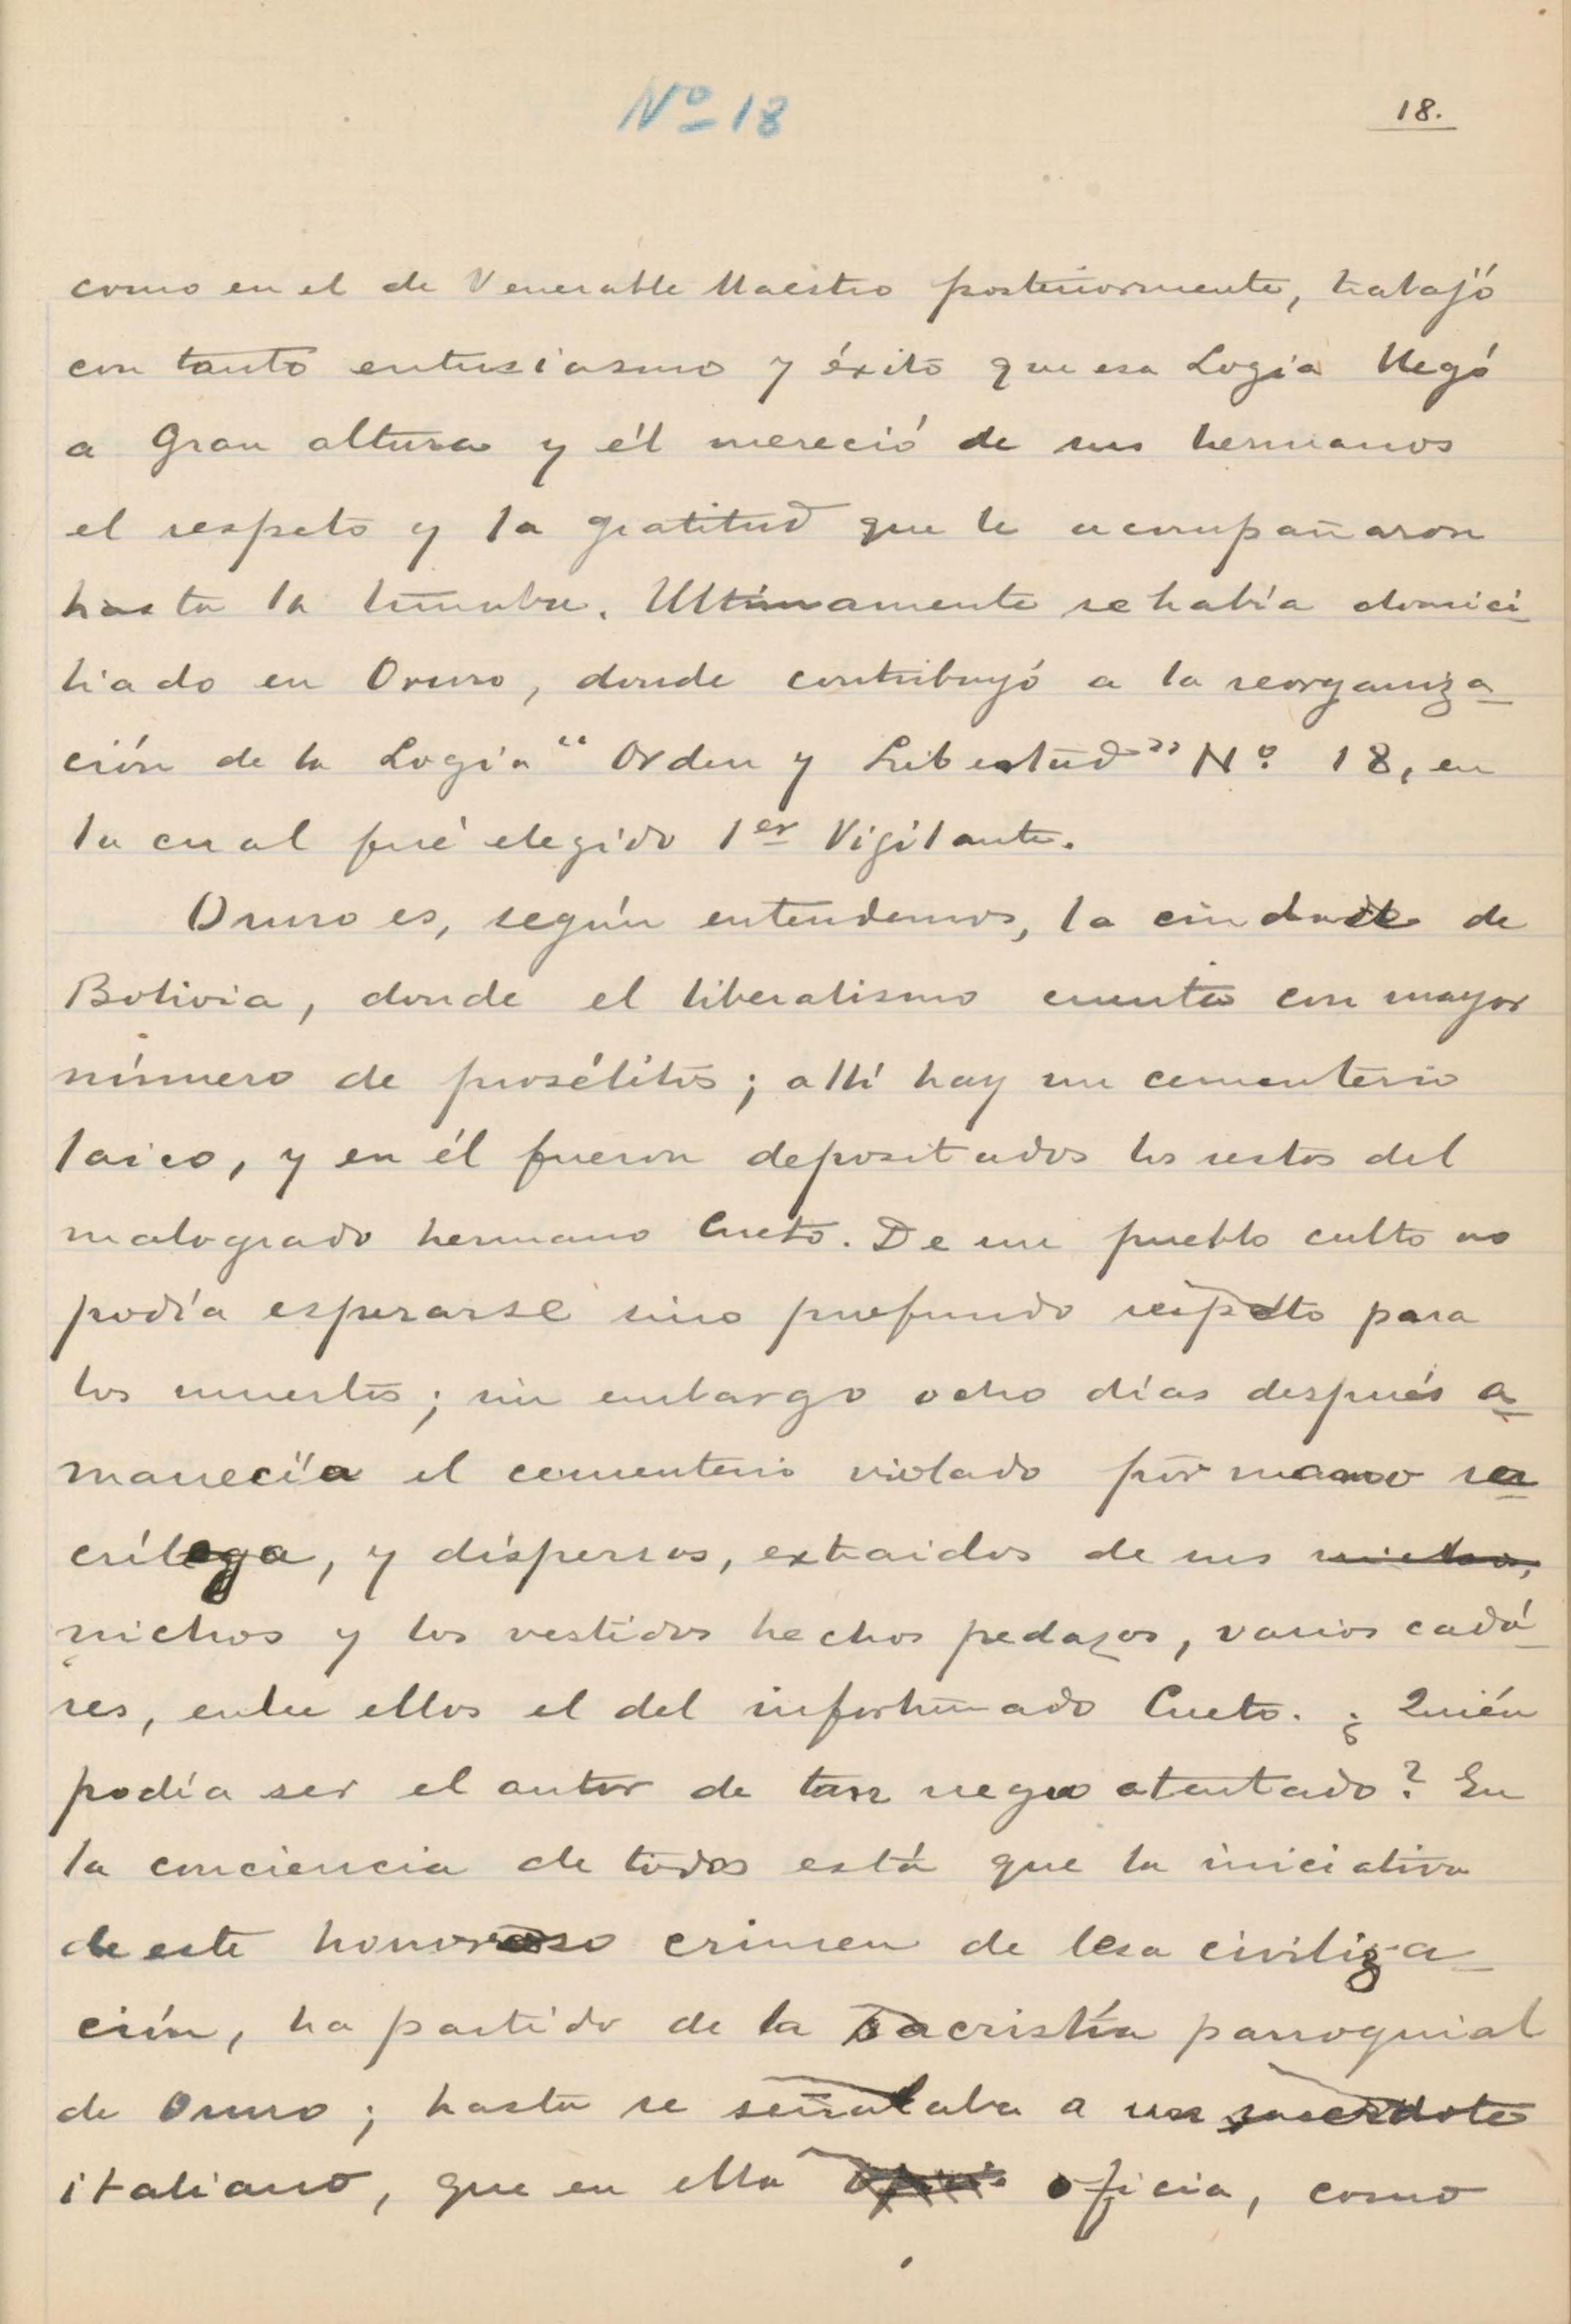 Nº 18
18.
como en el de Venerable Maestro posteriormente, trabajó
con tanto entusiasmo y éxito que esa Logia llegó
a gran altura y él mereció de sus hermanos
el respeto y la gratitud que le acompañaron
hasta la tumba. Ultimamente se había domici
liado en Oruro, donde contribuyó a la reorganiza-
ción de la Logia "Orden y Libertad" Nº 18, en
la cual fué elegido 1er Vigilante.
Oruro es, según entendemos, la ciudad de
Bolivia, donde el liberalismo cuenta con mayor
número de prosélitos; allí hay un cementerio
laico, y en él fueron depositados los restos del
malogrado hermano Cueto. De un pueblo culto no
podía esperarse sino profundo respeto para
los muertos; sin embargo ocho días después a-
manecía el cementerio violado por mano sa-
crílega, y dispersos, extraidos de sus
nichos y los vestidos hechos pedazos, varios cadá-
res, entre ellos el del infortunado Cueto. ¿Quién
podía ser el autor de tan negro atentado? En
la conciencia de todos está que la iniciativa
de este horroroso crimen de lesa civiliza-
ción, ha partido de la sacristía parroquial
de Oruro; hasta se señalaba a un sacerdote
italiano, que en ella oficia, como